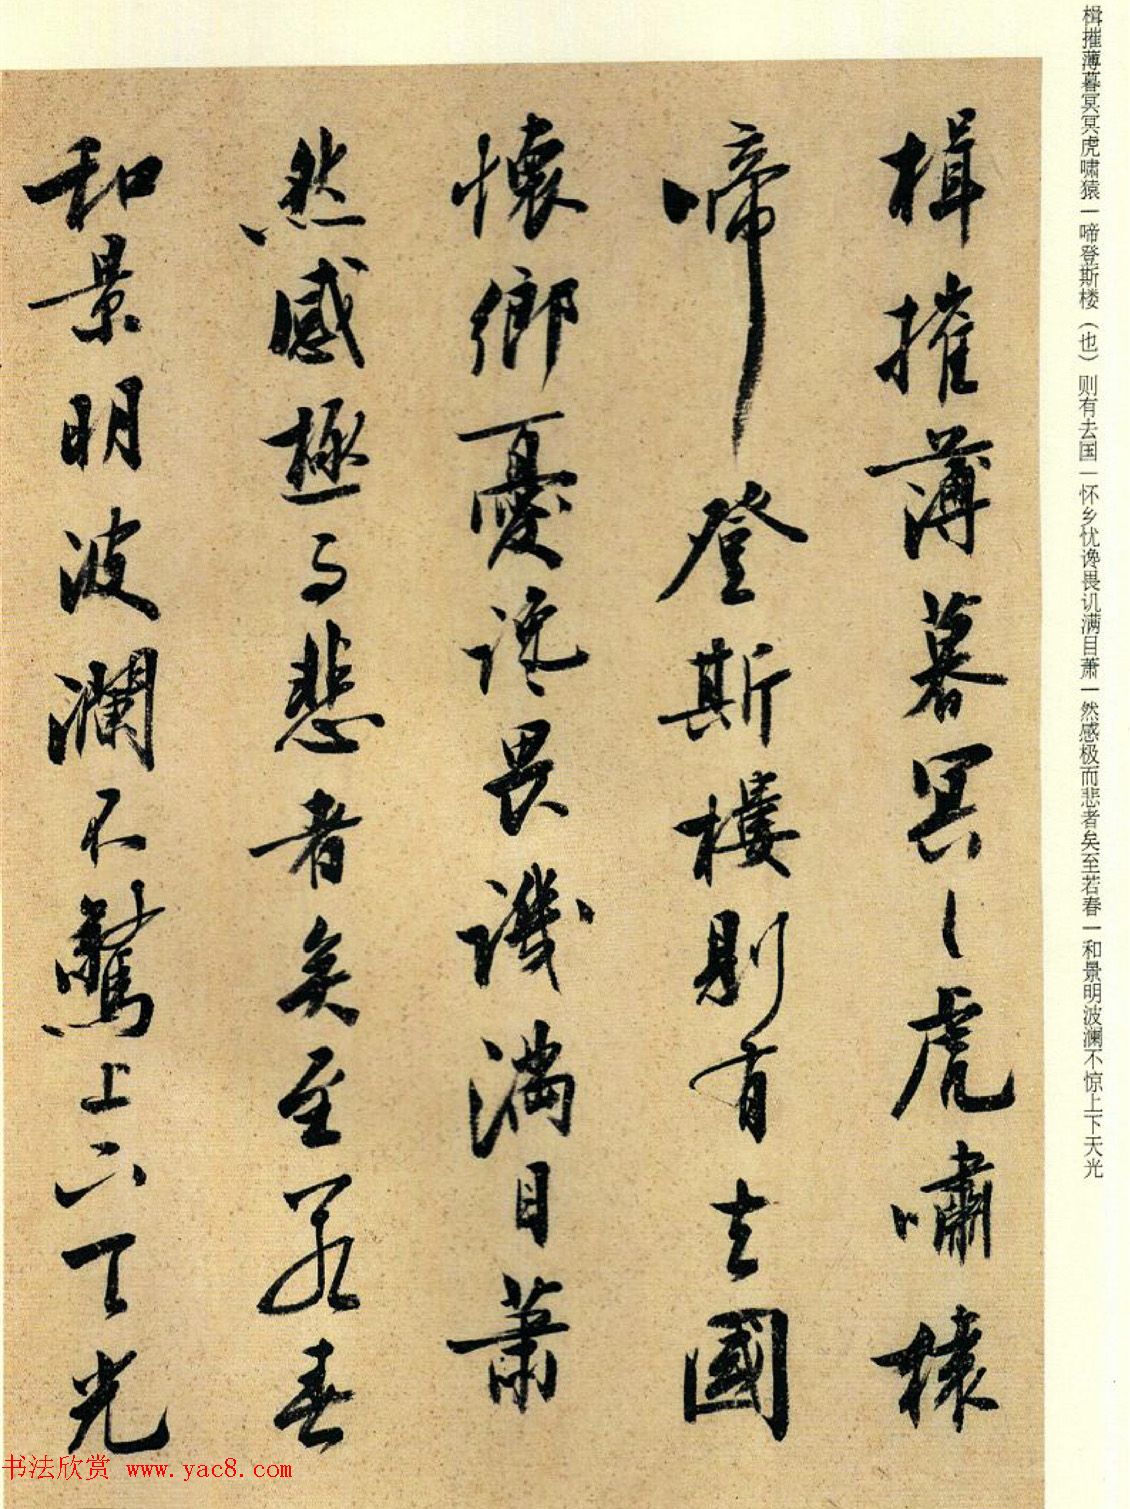 楫摧薄暮冥冥虎啸猿一啼登斯楼（也）则有去国一怀乡忧谗畏讥满目萧一然感极而悲者矣至若春一和景明波澜不惊上下天光
楫摧薄暮冥〻虎嘯猿
啼登斯樓則有去國
懷鄉憂讒畏譏滿目蕭
然感極而悲者矣至若春
和景明波瀾不驚上下天光
书法欣赏 www.yac8.com